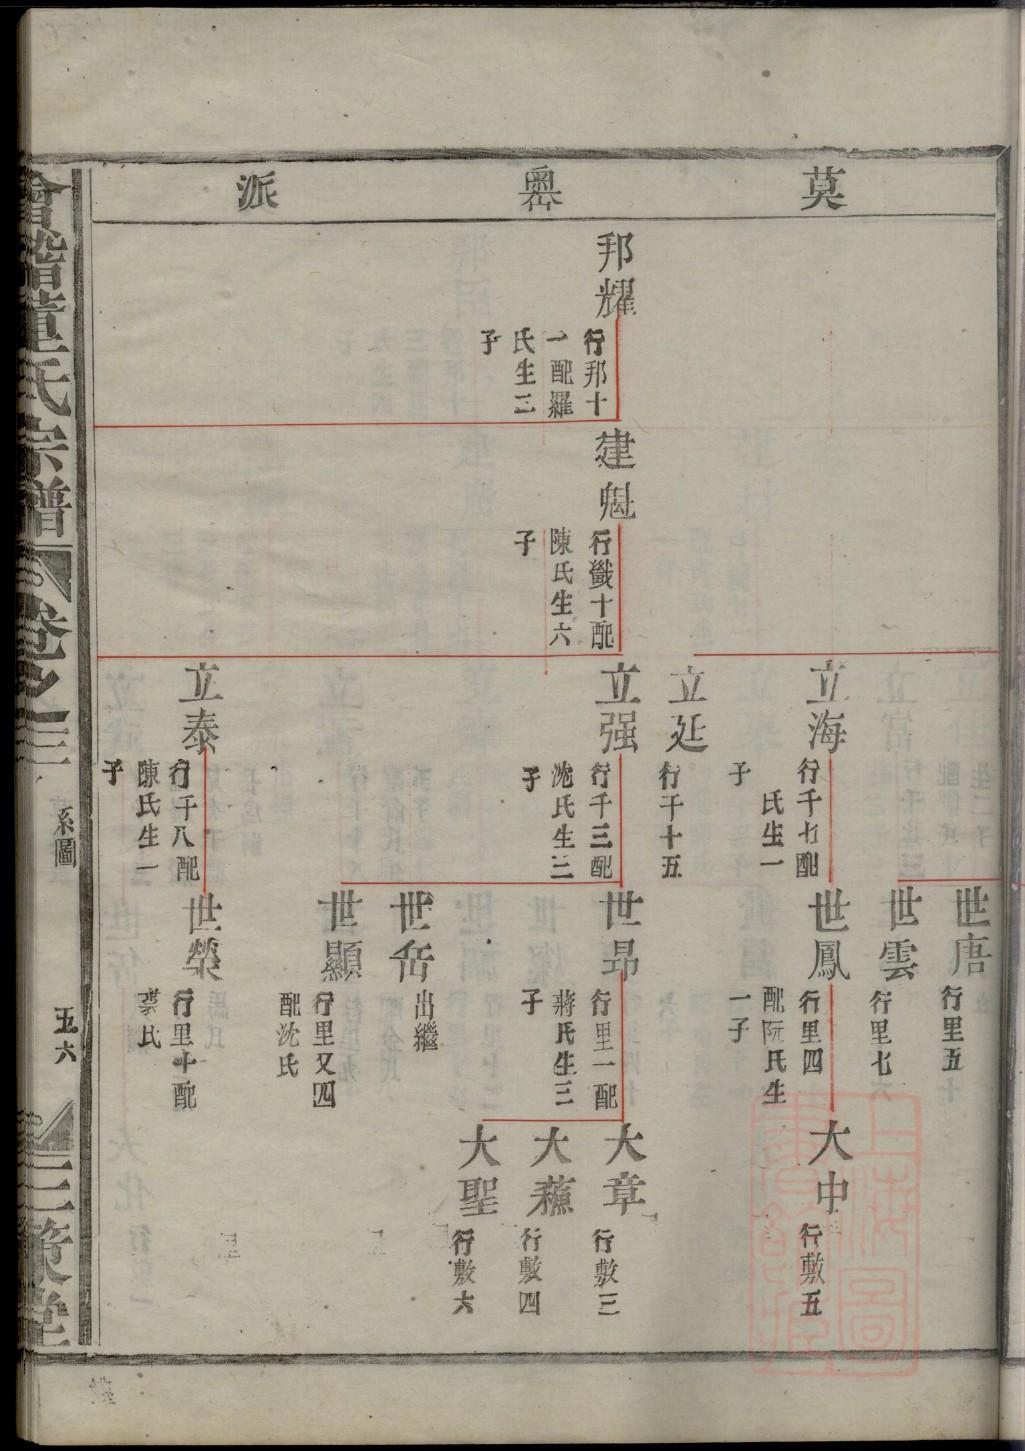 莫
派
邦耀
行邦十
一配羅
氏生三
子
建魁
行籛十配
陳氏生六
子
立海
行千七配
氏生一
子
立延
行千十五
立强
行千三配
沈氏生三
子
立泰
行千八配
陳氏生一
子
世唐
行里五
世雲
行里七
世鳳
行里四
配阮氏生
一子
世昂
行里一配
蔣氏生三
子
世岳
出繼
世顯
行里又四
配沈氏
世榮
行里十配
裘氏
大中
行敷五
大章
行敷三
大蘓
行敷四
大聖
行敷六
會稽董氏宗譜
卷之三
系圖
五六
三策堂